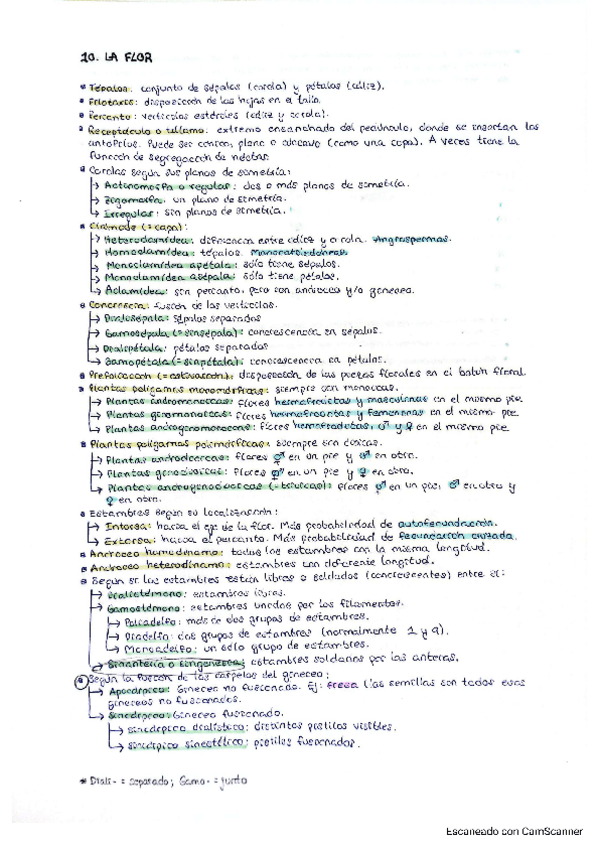 10. LA FLOR
* Tépalos: conjunto de sépalos (corola) y pétalos (cáliz).
* Filotaxis: disposición de las hojas en el tallo.
* Perianto: verticilos estériles (cáliz y corola).
* Receptáculo o tálamo: extremo ensanchado del pedúnculo, donde se insertan los
antófilos. Puede ser cónico, plano o cóncavo (como una copa). A veces tiene la
función de segregación de néctar.
* Corolas según sus planos de simetría:
↳ Actinomorfa o regular: dos o más planos de simetría.
↳ Zigomorfa: un plano de simetría.
↳ Irregular: sin planos de simetría.
* (= capa):
↳ Heteroclamídea: diferencian entre cáliz y corola. Angiospermas.
↳ Homoclamídea: tépalos. Monocotiledóneas
↳ Monoclamídea apétala: sólo tiene sépalos.
↳ Monoclamídea asépala: sólo tiene pétalos.
↳ Aclamídea: sin perianto, pero con androceo y/o gineceo.
* Concrescencia: fusión de los verticilos.
↳ Dialisépala: sépalos separados
↳ Gamosépala (= sinsépala): concrescencia en sépalos.
↳ Dialipétala: pétalos separados
↳ Gamopétala (= sinpétala): concrescencia en pétalos.
* Prefoliación (= estivación): disposición de las piezas florales en el botón floral.
* Plantas polígamas monomórficas: siempre son monoicas.
↳ Plantas andromonoicas: flores hermafroditas y masculinas en el mismo pie.
↳ Plantas ginomonoicas: flores hermafroditas y femeninas en el mismo pie
↳ Plantas androginomonoicas: flores hermafroditas, ♂ y ♀ en el mismo pie
* Plantas polígamas polimórficas: siempre son dioicas.
↳ Plantas androdioicas: flores ⚥ en un pie y ♂ en otro.
↳ Plantas ginodioicas: flores ⚥ en un pie y ♀ en otro.
↳ Plantas androginodioicas (= trioicas): flores ⚥ en un pie, ♂ en otro y
♀ en otro.
* Estambres según su localización:
↳ Introrsa: hacia el eje de la flor. Más probabilidad de autofecundación.
↳ Extorsa: hacia el perianto. Más probabilidad de fecundación cruzada.
* Androceo homodínamo: todos los estambres con la misma longitud.
* Androceo heterodínamo: estambres con diferente longitud.
* Según si los estambres están libres o soldados (concrescentes) entre sí:
↳ Dialistémono: estambres libres.
↳ Gamostémono: estambres unidos por los filamentos.
↳ Poliadelfo: más de dos grupos de estambres.
↳ Diadelfo: dos grupos de estambres (normalmente 1 y 9).
↳ Monoadelfo: un sólo grupo de estambres.
↳ Sinantéreo o singenésico: estambres soldados por las anteras.
* Según la fusión de los carpelos del gineceo:
↳ Apocárpico: Gineceo no fusionado. Ej: fresa (las semillas son todos esos
gineceos no fusionados.
↳ Sincárpico: Gineceo fusionado.
↳ sincárpico dialistílico: distintos pistilos visibles.
↳ sincárpico sinestílico: pistilos fusionados.
* Diali- = separado; Gamo- = junto
Escaneado con CamScanner